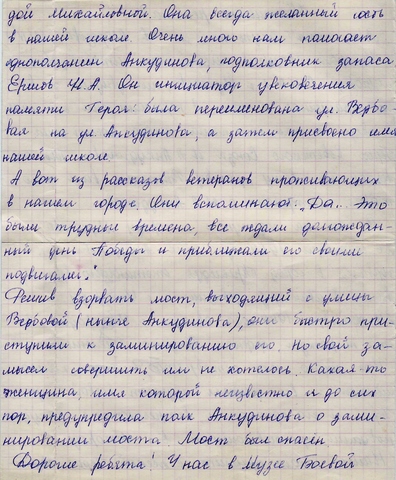 дой Михайловной. Она всегда желанный гость
в нашей школе. Очень много нам помогает
однополчанин Анкудинова, подполковник запаса
Ершов Н.А. Он инициатор увековечения
памяти Героя: была переименована ул. Вербо-
вая на ул. Анкудинова, а затем присвоено имя
нашей школе.
А вот из рассказов ветеранов проживающих
в нашем городе. Они вспоминают: „Да.. Это
были трудные времена, все ждали долгождан-
ный день Победы и приближали его своими
подвигами."
Решив взорвать мост, выходящий с улицы
Вербовой (нынче Анкудинова), они быстро при-
ступили к заминированию его. Но свой за-
мысел совершить им не удалось. Какая-то
женщина, имя которой неизвестно и до сих
пор, предупредила полк Анкудинова о зами-
нировании моста. Мост был спасён
Дорогие ребята! У нас в Музее Боевой